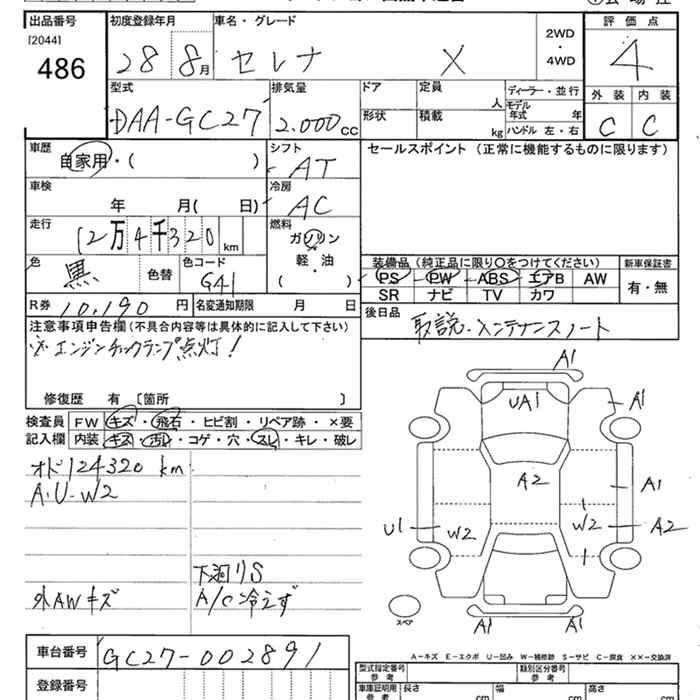 出品番号 初度登録年月 車名・グレード 2WD・4WD 評価点
[2044]
486 28 8月 セレナ X 4
型式 排気量 ドア 定員 人 ディーラー・並行 外装 内装
DAA-GC27 2.000cc 形状 積載 kg モデル年式 年 C C
ハンドル 左・右
車歴 シフト セールスポイント (正常に機能するものに限ります)
自家用・( ) AT
車検 冷房
年 月( 日) AC
走行 燃料
12万4千320km ガソリン
軽・油
( )
色 色替 色コード
黒 G41
装備品(純正品に限り〇をつけてください) 新車保証書
PS PW ABS エアB AW 有・無
SR ナビ TV カワ
R券 10,190円 名変通知期限 月 日
後日品 取説・メンテナンスノート
注意事項申告欄(不具合内容等は具体的に記入して下さい)
※エンジンチェックランプ点灯!
修復歴 有 [箇所 ]
検査員 FW キズ・飛石・ヒビ割・リペア跡・×要
記入欄 内装 キズ・汚れ・コゲ・穴・スレ・キレ・破レ
オド124320km
A・U-W2
下廻りS
外AWキズ A/C冷えず
A1
UA1 A1
A2 A1
U1 W2 W2 A2
スペア
A1 A1
A-キズ E-エクボ U-凹み W-補修跡 S-サビ C-腐食 ××-交換済
車台番号 GC27-002891
登録番号
型式指定番号 参考 類別区分番号 参考
車庫証明用 参考 長さ cm 幅 cm 高さ cm